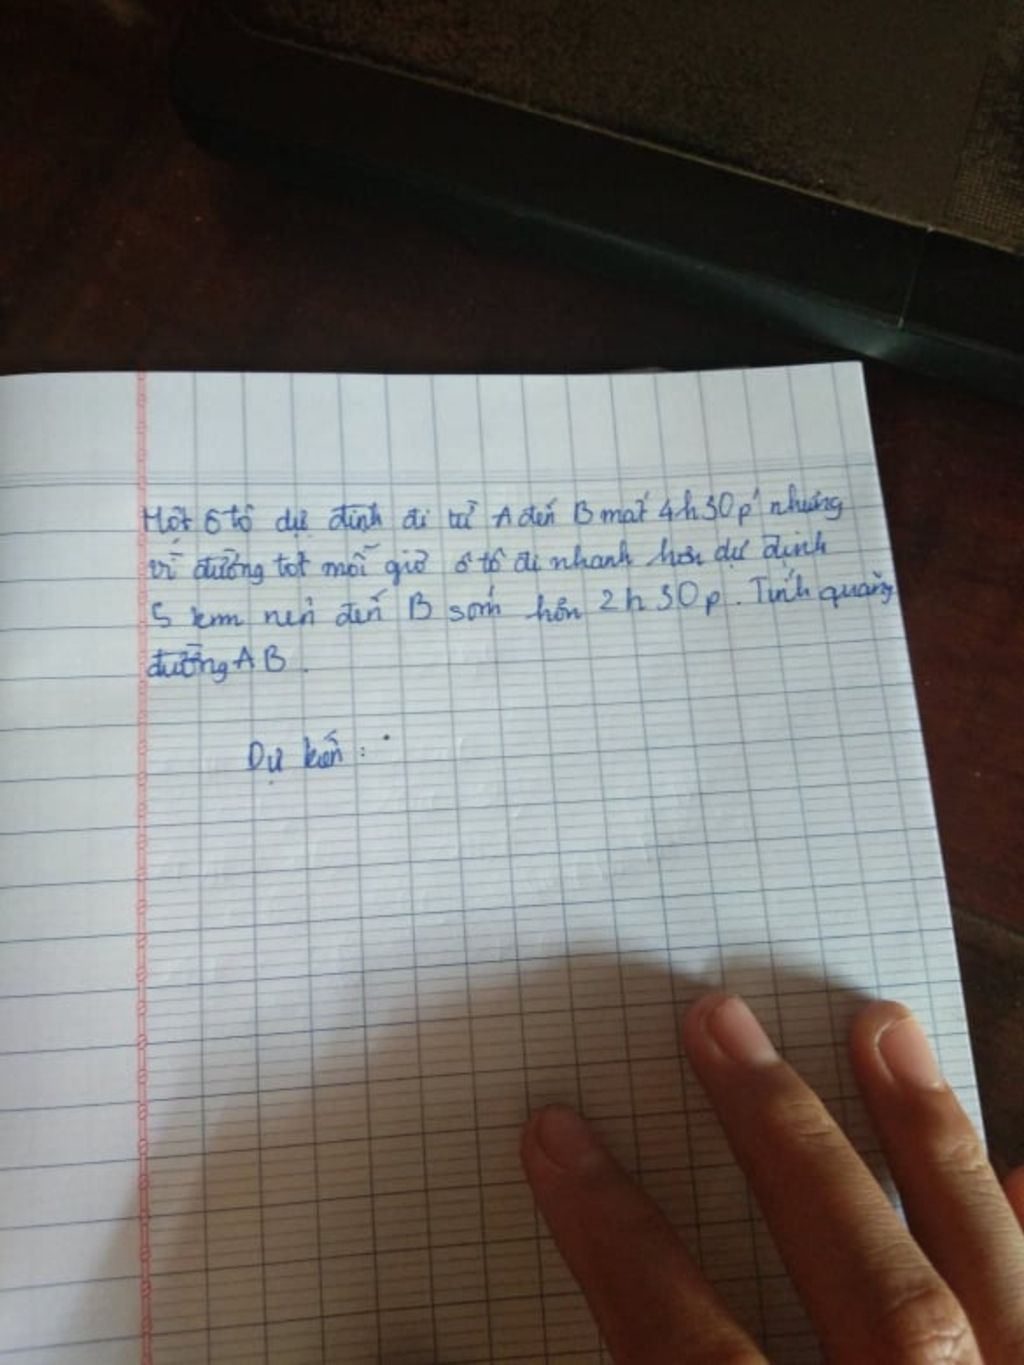 Một ô tô dự định đi từ A đến B mất 4h30p' nhưng
vì đường tốt mỗi giờ ô tô đi nhanh hơn dự định
5 km nên đến B sớm hơn 2h30p. Tính quãng
đường AB.
Dự kiến :